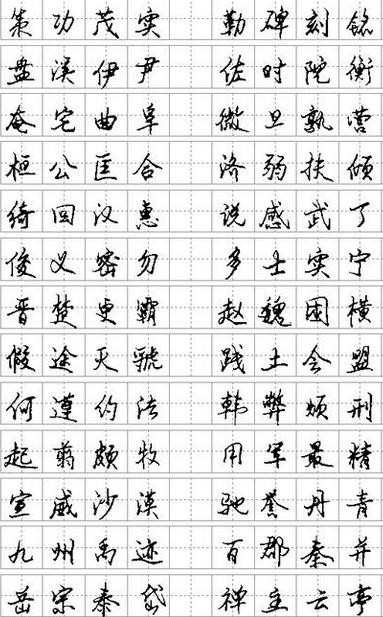 策功茂实 勒碑刻铭
盘溪伊尹 佐时院衡
奄宅曲阜 微旦孰营
桓公匡合 济弱扶倾
绮回汉惠 说感武丁
俊义密勿 多士实宁
晋楚更霸 赵魏困横
假途灭虢 践土会盟
何遵约法 韩弊烦刑
起翦颇牧 用军最精
宣威沙漠 驰誉丹青
九州禹迹 百郡秦并
岳宗泰岱 禅主云亭